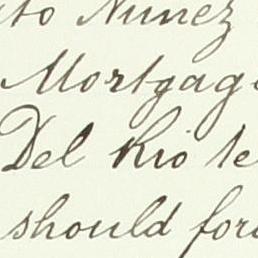 to Nunez
Mortgag
Del Rio te
should for